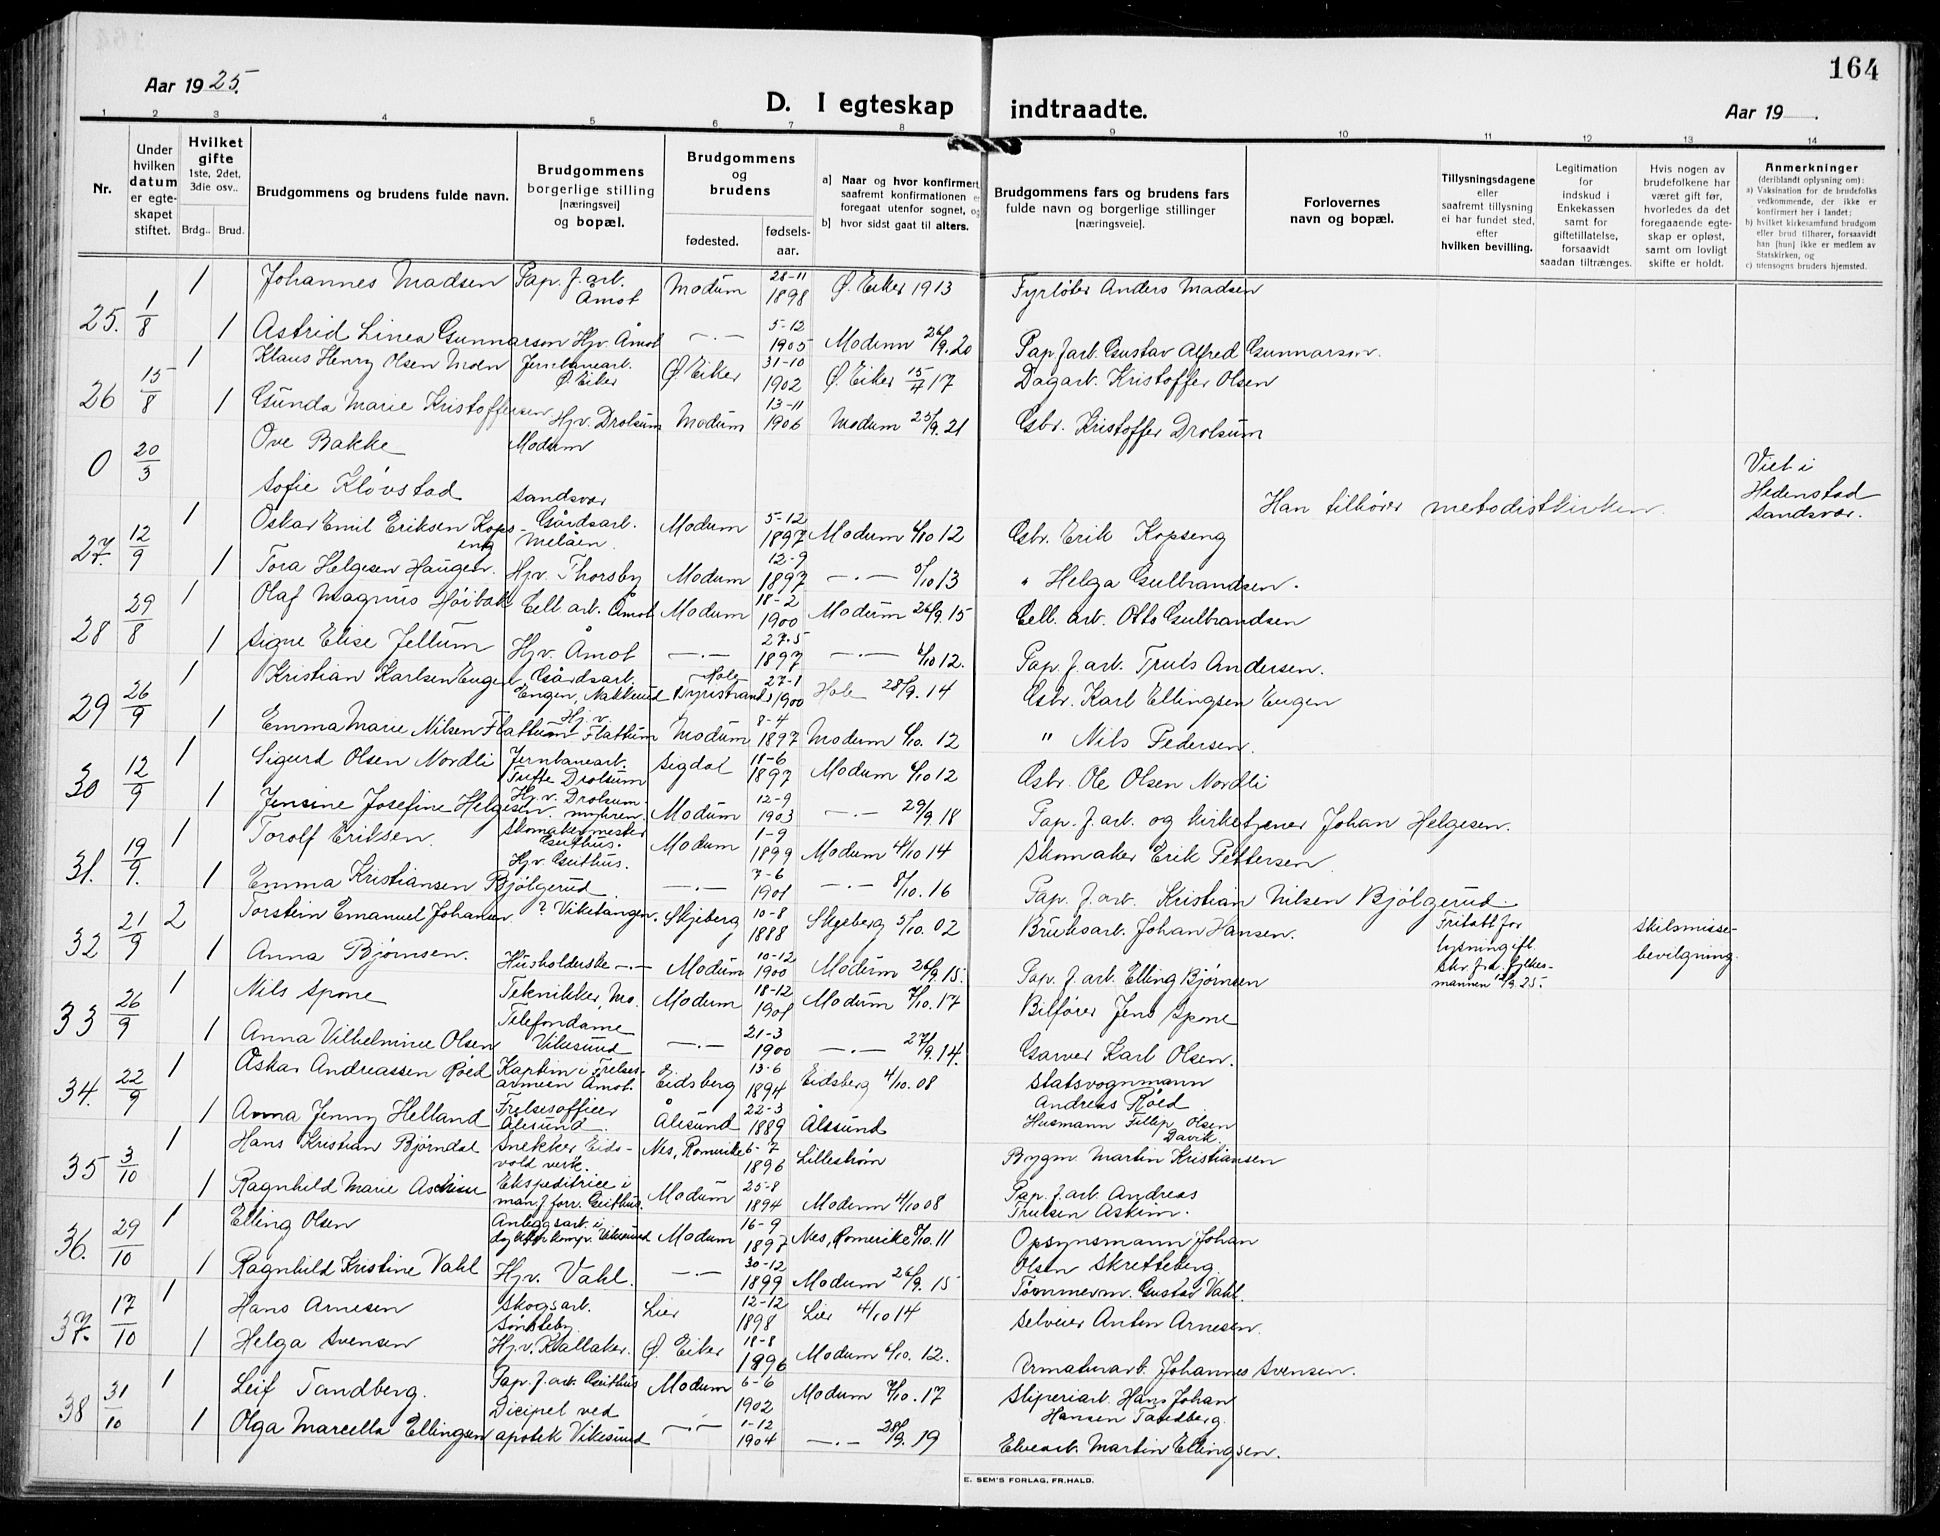 164
Aar 1925.
D. I egteskap indtraadte.
Aar 19 .
1 2 3 4 5 6 7 8 9 10 11 12 13 14
Nr.
Under hvilken datum er egteskapet stiftet.
Hvilket gifte 1ste, 2det, 3die osv..
Brdg.. Brud.
Brudgommens og brudens fulde navn.
Brudgommens borgerlige stilling [næringsvei] og bopæl.
Brudgommens og brudens
fødested.
fødselsaar.
a) Naar og hvor konfirmert
saafremt konfirmationen e
foregaat utenfor sognet, og
b) hvor sidst gaat til alters.
Brudgommens fars og brudens fars
fulde navn og borgerlige stillinger
[næringsveie].
Forlovernes
navn og bopæl.
Tillysningsdagene
eller
saafremt tillysning
ei har fundet sted,
efter
hvilken bevilling.
Legitimation
for
indskud i
Enkekassen
samt for
giftetillatelse,
forsaavidt
saadan tiltrænges.
Hvis nogen av
brudefolkene har
været gift før,
hvorledes da det
foregaaende egte-
skap er opløst,
samt om lovligt
skifte er holdt.
Anmerkninger
(deriblandt oplysning om):
a) Vaksination for de brudefolks
vedkommende, der ikke er
konfirmert her i landet;
b) hvilket kirkesamfund brudgom
eller brud tilhører, forsaavidt
han [hun] ikke er medlem av
Statskirken, og
c) utensogns bruders hjemsted.
25. 1/8 1 Johannes Madsen Pap. f. arb. Åmot Modum 28-11 1898 Ø. Eiker 1913 Fyrbøter Anders Madsen
1 Astrid Linea Gunnarson Hjv. Åmot —.— 5-12 1905 Modum 26/9.20 Pap f arb. Gustav Alfred Gunnarson.
26 15/8 1 Klaus Henry Olsen Moen Jernbanearb. Ø. Eiker Ø. Eiker 31-10 1902 Ø. Eiker 15/4 17 Dagarb. Kristoffer Olsen
1 Gunda Marie Kristoffersen Hjv. Drolsum Modum 13-11 1906 Modum 25/9.21 Gbr. Kristoffer Drolsum
0 20/3 Ove Bakke Modum
Sofie Kløvstad Sandsvær Han tilhører metodistkirken. Viet i Hedenstad Sandsvær.
27. 12/9 1 Oskar Emil Eriksen Kopseng Gårdsarb. Melåen. Modum 5-12 1897 Modum 6/10 12 Gbr. Erik Kopseng
1 Tora Helgesen Haugen. Hjv. Thorsby Modum 12-9 1897 —.— 5/10 13 " Helge Gulbrandsen.
28 29/8 1 Olaf Magnus Høibak Cell. arb. Åmot Modum 18-2 1900 Modum 26/9.15 Cell. arb. Otto Gulbrandsen
1 Signe Elise Jellum Hjv. Åmot —.— 27-5 1897 —.— 6/10 12. Pap. f. arb. Truls Andersen.
29 26/9 1 Kristian Karlsen Engen Gårdsarb. Engen, Nakkerud Hole Tyristrand 27-1 1900 Hole 28/9.14 Gbr. Karl Ellingsen Engen
1 Emma Marie Nilsen Flattum Hj.v. Flattum Modum 8-4 1897 Modum 6/10. 12 " Nils Pedersen.
30 12/9 1 Sigurd Olsen Nordli Jernbanearb. Tufte Drolsum Sigdal 11-6 1897 Modum 6/10 12 Gbr. Ole Olsen Nordli
1 Jensine Josefine Helgesen. Hj.v. Drolsum myhren. Modum 12-9 1903 —.— 29/9.18 Pap. f. arb. og kirketjener Johan Helgesen.
31. 19/9. 1 Torolf Eriksen. Skomakermester Geithus. Modum 1-9 1899 Modum 4/10 14 Skomaker Erik Pettersen.
1 Emma Kristiansen Bjølgerud. Hjv. Geithus. —.— 7-6 1901 —.— 8/10. 16 Pap. f. arb. Kristian Nilsen Bjølgerud.
32 21/9 2 Torstein Emanuel Johansen ? Viketangen. Skjeberg 10-8 1888 Skjeberg 5/10. 02 Bruksarb. Johan Hansen. Fritatt for lysning eft. skr. fra fylkesmannen 12/9.25. Skilsmissebevilgning.
1 Anna Bjørnsen. Husholderske —.— Modum 10-12 1900 Modum 26/9.15. Pap. f. arb. Elling Bjørnsen
33 26/9 1 Nils Spone Tekniker, Mo. Modum 18-12 1901 Modum 7/10. 17 Bilfører Jens Spone
1 Anna Vilhelmine Olsen Telefondame Vikesund —.— 21-3 1900 —.— 27/9.14. Garver Karl Olsen.
34. 22/9 1 Oskar Andreassen Røed Kaptein i Frelsesarmeen Åmot. Eidsberg 13-6 1894 Eidsberg 4/10.08 Statsvognmann Andreas Røed
1 Anna Jenny Helland Frelsesofficer Ålesund. Ålesund 22-3 1889 Ålesund Husmann Fillip Olsen Davik.
35 3/10 1 Hans Kristian Bjørndal Snekker Eidsvold verk. Nes, Romerike 6-7 1896 Lillestrøm Bygm Martin Kristiansen
1 Ragnhild Marie Askim Ekspeditrice i man.f.forr. Geithus. Modum 25-8 1894 Modum 4/10 08 Pap. f. arb. Andreas Trulsen Askim.
36. 29/10 1 Elling Olsen Anleggsarb. i Vikesund Modum 16-9 1897 Nes, Romerike 8/10.11 Opsynsmann Johan Olsen Skretteberg.
1 Ragnhild Kristine Vahl Hjv. Vahl. —.— 30-12 1899 Modum 26/9.15 Tømmerm. Gustav Vahl.
37. 17/10 1 Hans Arnesen Skogsarb. Sønsteby. Lier 12-12 1898 Lier 4/10 14 Selveier Anton Arnesen.
1 Helga Svensen Hj.v. Kallaker. Ø. Eiker 18-8 1896 Modum 6/10. 12. Armaturarb. Johannes Svensen.
38 31/10 1 Leif Tandberg. Pap. f. arb. Geithus Modum 6-6 1902 Modum 7/10. 17 Sliperiarb. Hans Johan Hansen Tandberg.
1 Olga Marcella Ellingsen Dicipel ved apotek Vikesund —.— 1-12 1904 —.— 28/9.19 Elvearb. Martin Ellingsen.
E. SEM'S FORLAG, FR.HALD.